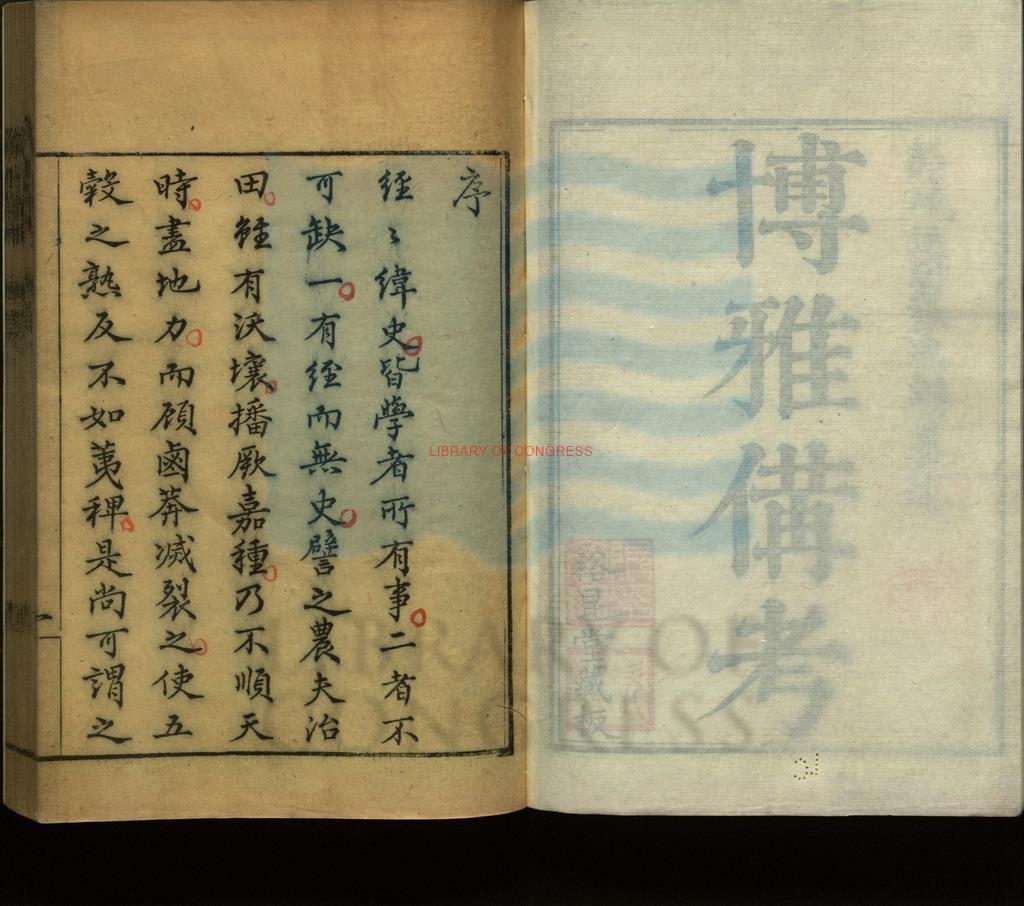 博雅備考
裕昆堂藏板
序
經〻緯史皆學者所有事二者不
可缺一有經而無史譬之農夫治
田雖有沃壤播厥嘉種乃不順天
時盡地力而顧鹵莽滅裂之使五
穀之熟反不如荑稗是尚可謂之
一
LIBRARY OF CONGRESS
LIBRARY OF
CONGRESS